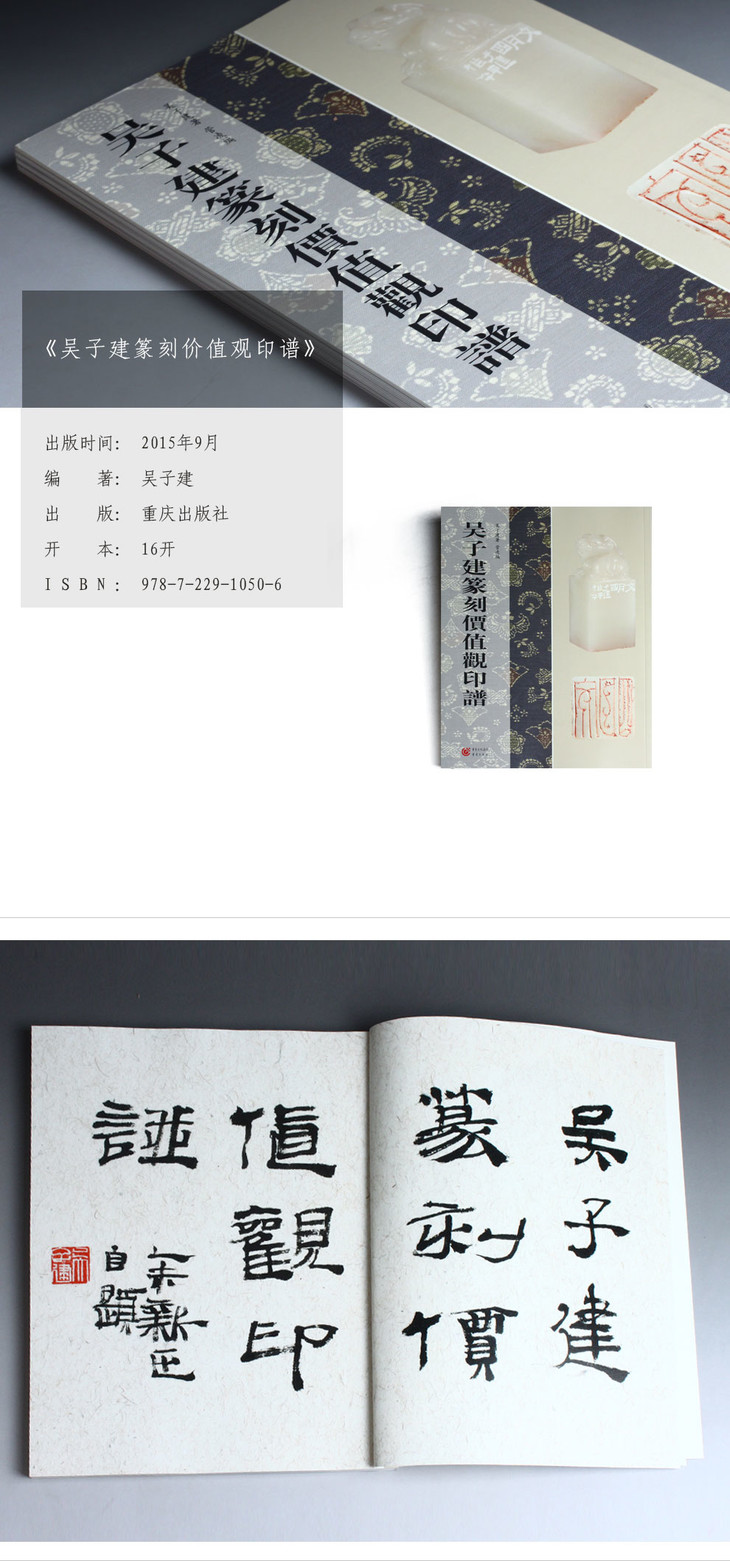 吴子建篆刻價值觀印譜
《吴子建篆刻价值观印谱》
出版时间： 2015年9月
编　　著： 吴子建
出　　版： 重庆出版社
开　　本： 16开
ISBN： 978-7-229-1050-6
吴子建篆刻價值觀印譜
吴子建
篆刻價
值觀印
譜
乙未新正
自題